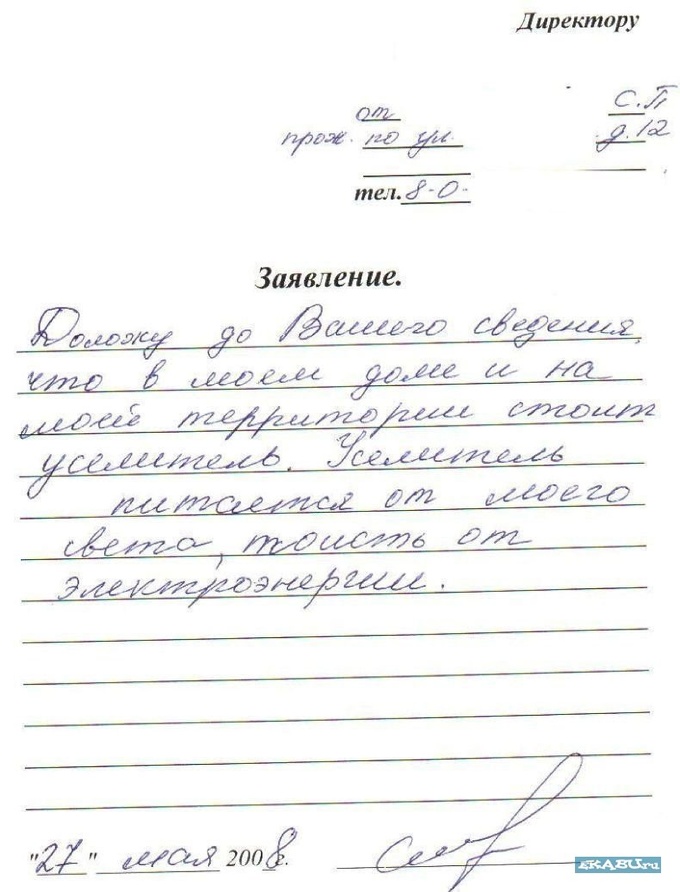 Директору
от С.П
прож. по ул. д.12
тел. 8-0-
Заявление.
Доложу до Вашего сведения,
что в моем доме и на
моей территории стоит
уселитель. Уселитель
питается от моего
света, тоисть от
электроэнергии.
"27" мая 2008г.
EKABU.ru